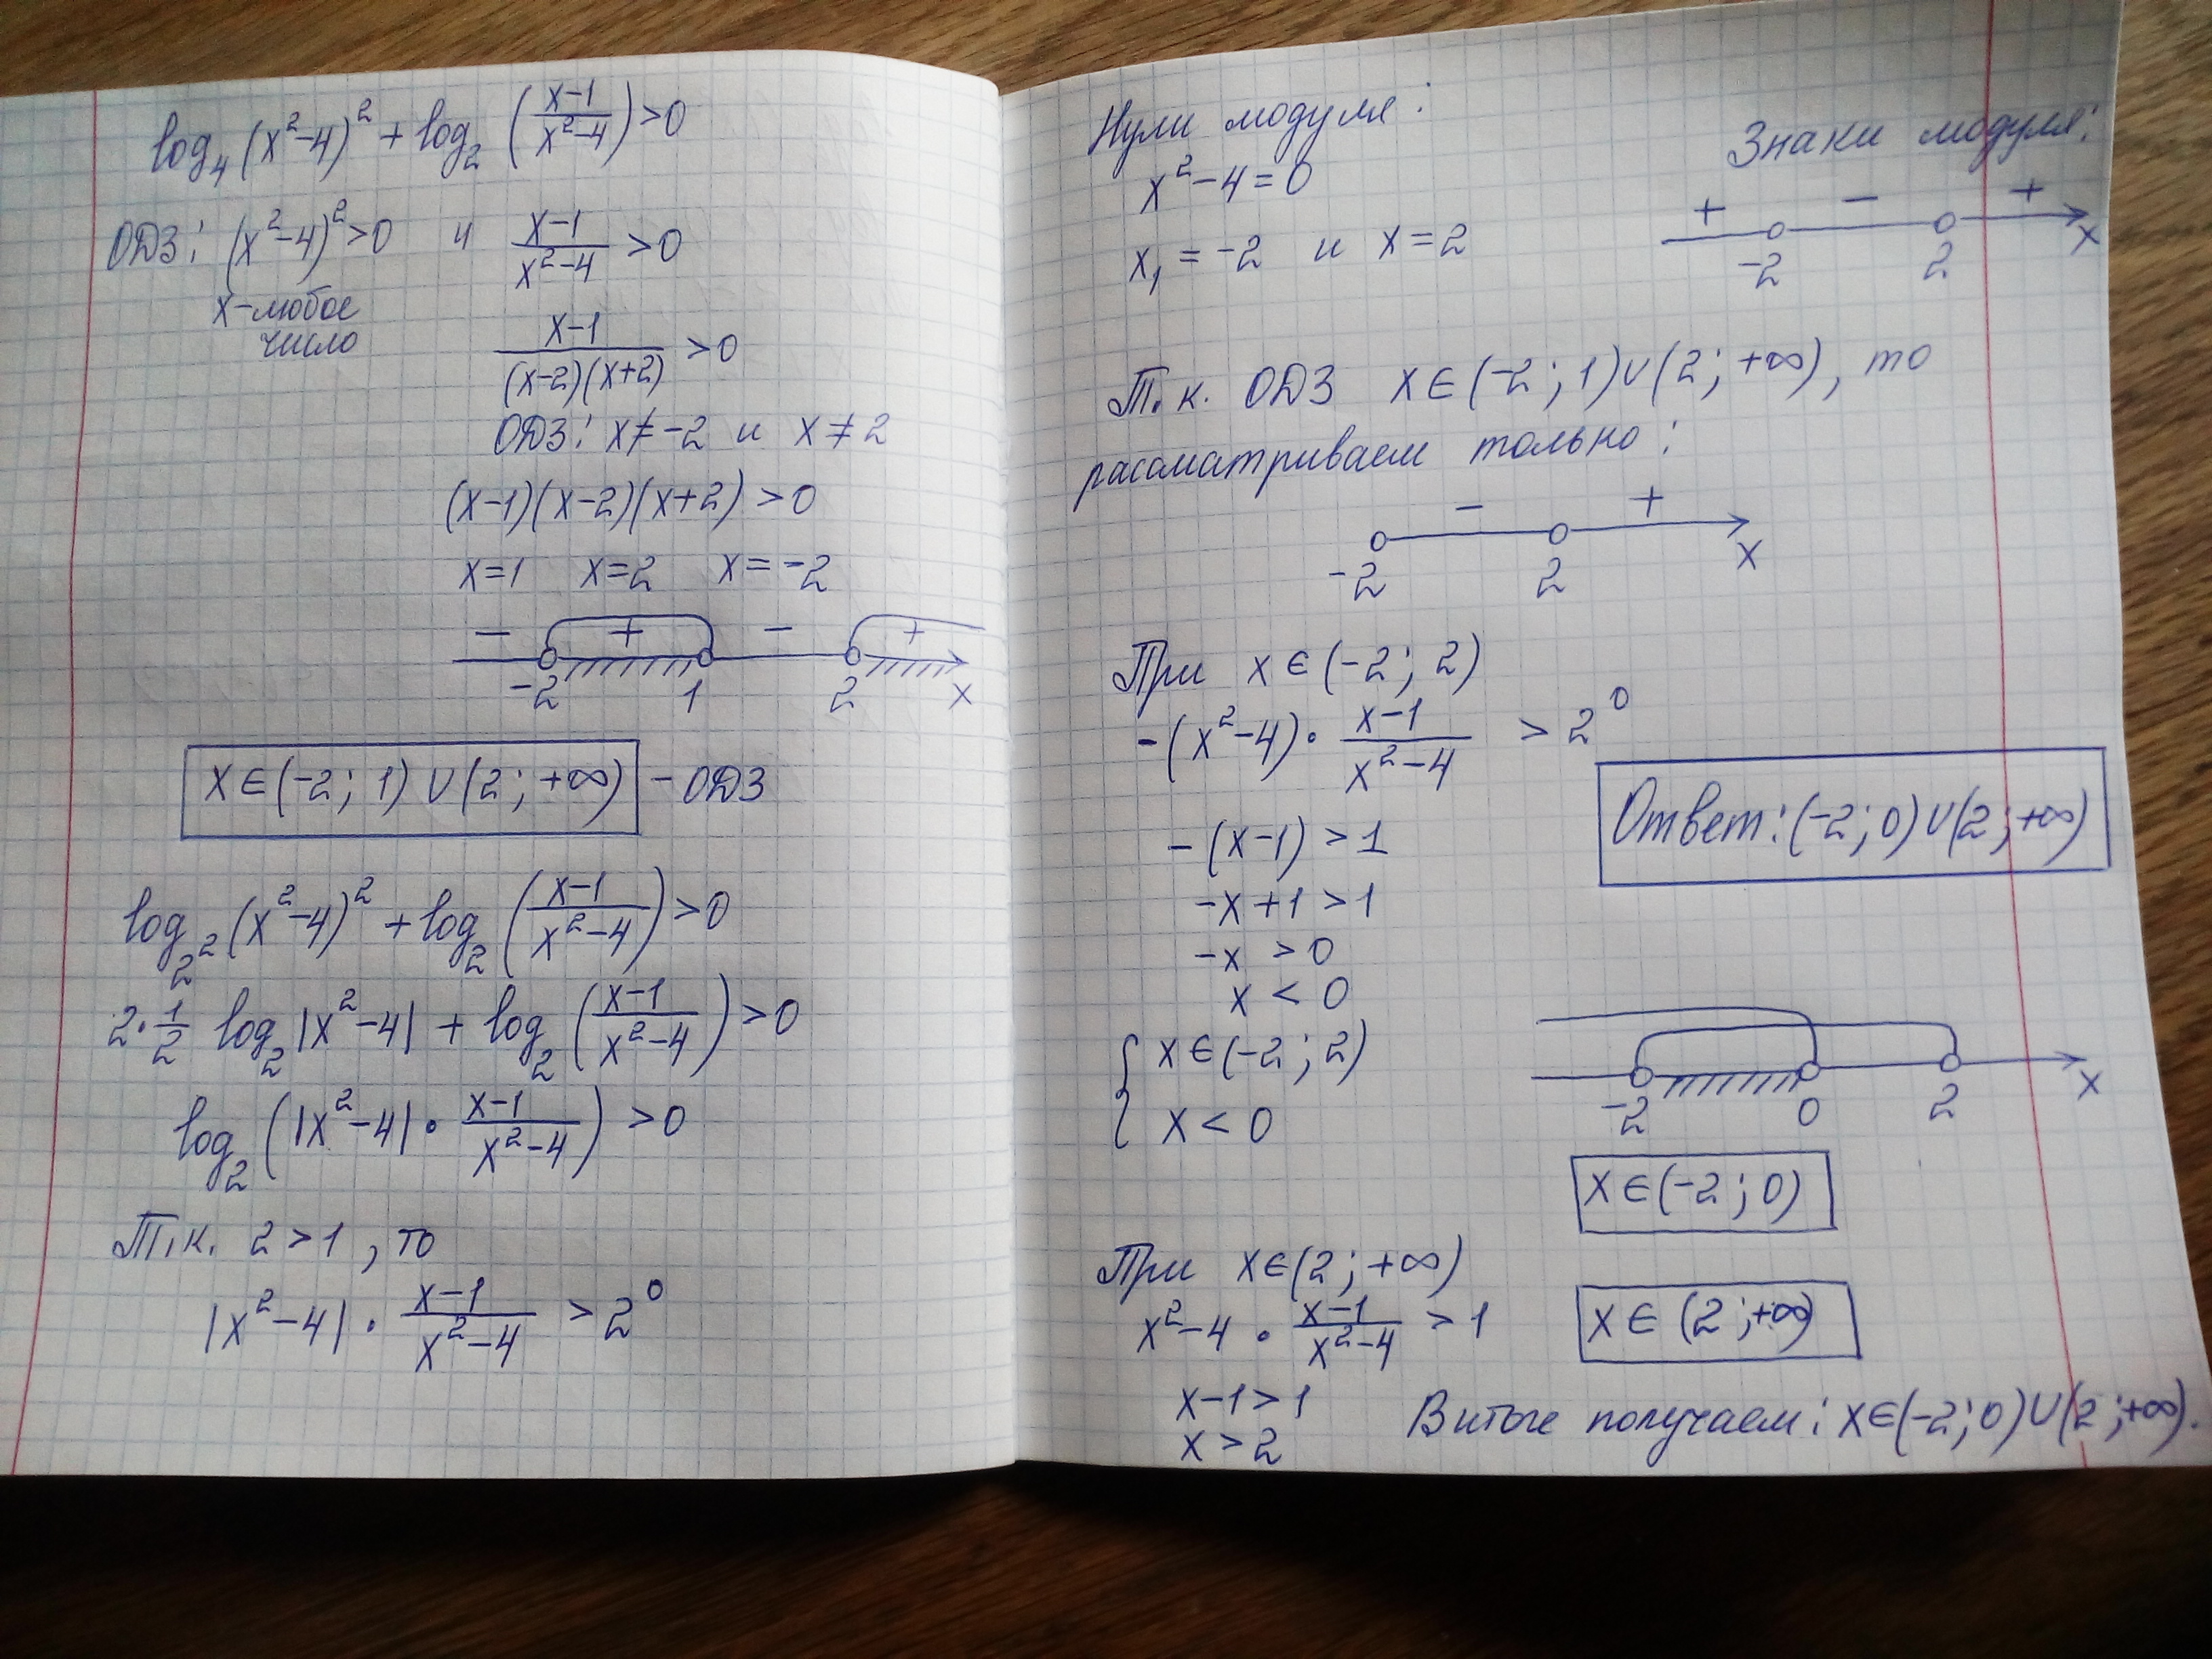 log₄(x²-4)² + log₂(x-1/x²-4) > 0
ОДЗ: (x²-4)² > 0 и x-1/x²-4 > 0
x-любое
число
x-1/(x-2)(x+2) > 0
ОДЗ: x ≠ -2 и x ≠ 2
(x-1)(x-2)(x+2) > 0
x=1 x=2 x=-2
- + - +
-2 1 2 x
x ∈ (-2; 1) ∪ (2; +∞) - ОДЗ
log₂²(x²-4)² + log₂(x-1/x²-4) > 0
2·1/2 log₂|x²-4| + log₂(x-1/x²-4) > 0
log₂(|x²-4|·x-1/x²-4) > 0
Т.к. 2 > 1, то
|x²-4|·x-1/x²-4 > 2⁰
Нули модуля:
x²-4=0
x₁ = -2 и x = 2
Знаки модуля:
+ - +
-2 2 x
Т.к. ОДЗ x ∈ (-2; 1) ∪ (2; +∞), то
рассматриваем только:
- +
-2 2 x
При x ∈ (-2; 2)
-(x²-4)·x-1/x²-4 > 2⁰
-(x-1) > 1
-x+1 > 1
-x > 0
x < 0
Ответ: (-2; 0) ∪ (2; +∞)
{ x ∈ (-2; 2)
x < 0
-2 0 2 x
x ∈ (-2; 0)
При x ∈ (2; +∞)
x²-4·x-1/x²-4 > 1
x-1 > 1
x > 2
x ∈ (2; +∞)
В итоге получаем: x ∈ (-2; 0) ∪ (2; +∞).